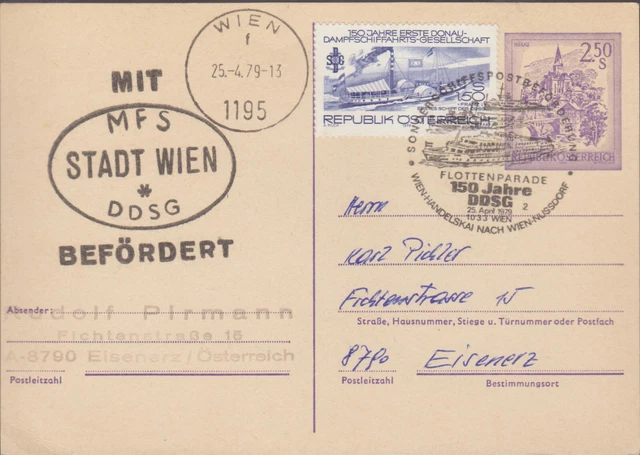 WIEN
f
25.-4.79-13
1195
MIT
MFS
STADT WIEN
*
DDSG
BEFÖRDERT
150 JAHRE ERSTE DONAU-
DAMPFSCHIFFAHRTS-GESELLSCHAFT
S
1.50
REPUBLIK ÖSTERREICH
2.50
S
REPUBLIK ÖSTERREICH
SONDER-SCHIFFSPOSTBEFÖRDERUNG
FLOTTENPARADE
150 Jahre
DDSG
25. April 1979 2
1033 WIEN
WIEN-HANDELSKAI NACH WIEN-NUSSDORF
Herrn
Karl Pichler
Fichtenstrasse 15
Straße, Hausnummer, Stiege u. Türnummer oder Postfach
8790 Eisenerz
Postleitzahl Bestimmungsort
Absender:
Rudolf Pirmann
Fichtenstraße 15
A-8790 Eisenerz/Österreich
Postleitzahl